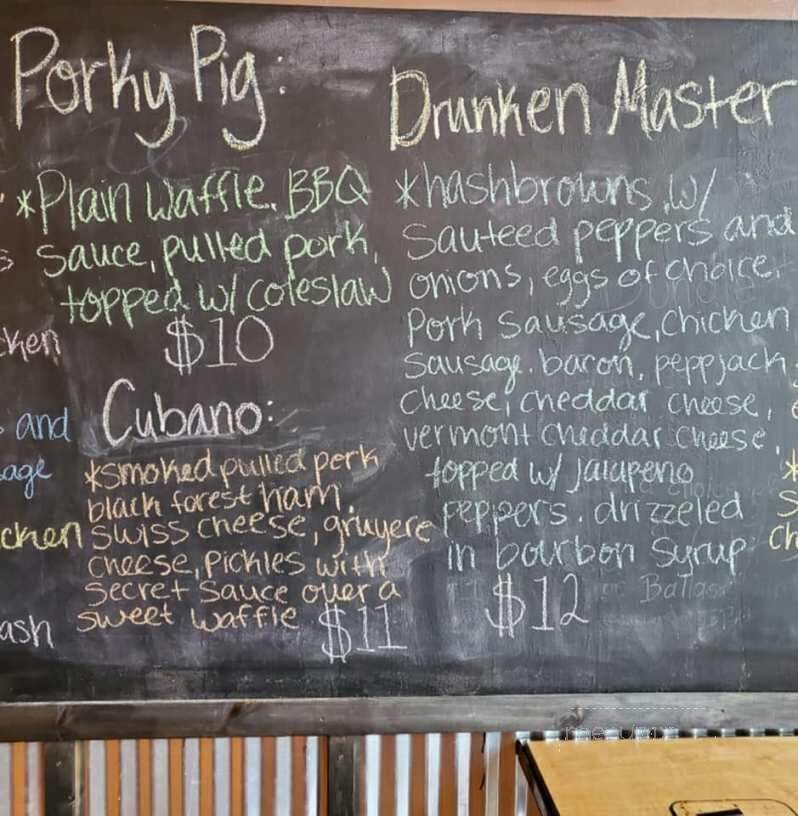 Porky Pig:
*Plain Waffle, BBQ
Sauce, pulled pork,
topped w/ coleslaw
$10
Cubano:
*smoked pulled perk
black forest ham,
swiss cheese, gruyere
cheese, pickles with
secret sauce over a
sweet waffle $11
Drunken Master
*hashbrowns w/
Sauteed peppers and
onions, eggs of choice,
Pork Sausage, chicken
Sausage, bacon, pepp jack
cheese, cheddar cheese,
vermont cheddar cheese,
topped w/ jalapeno
peppers, drizzeled
in bourbon syrup
$12
cken
and
age
cken
ash